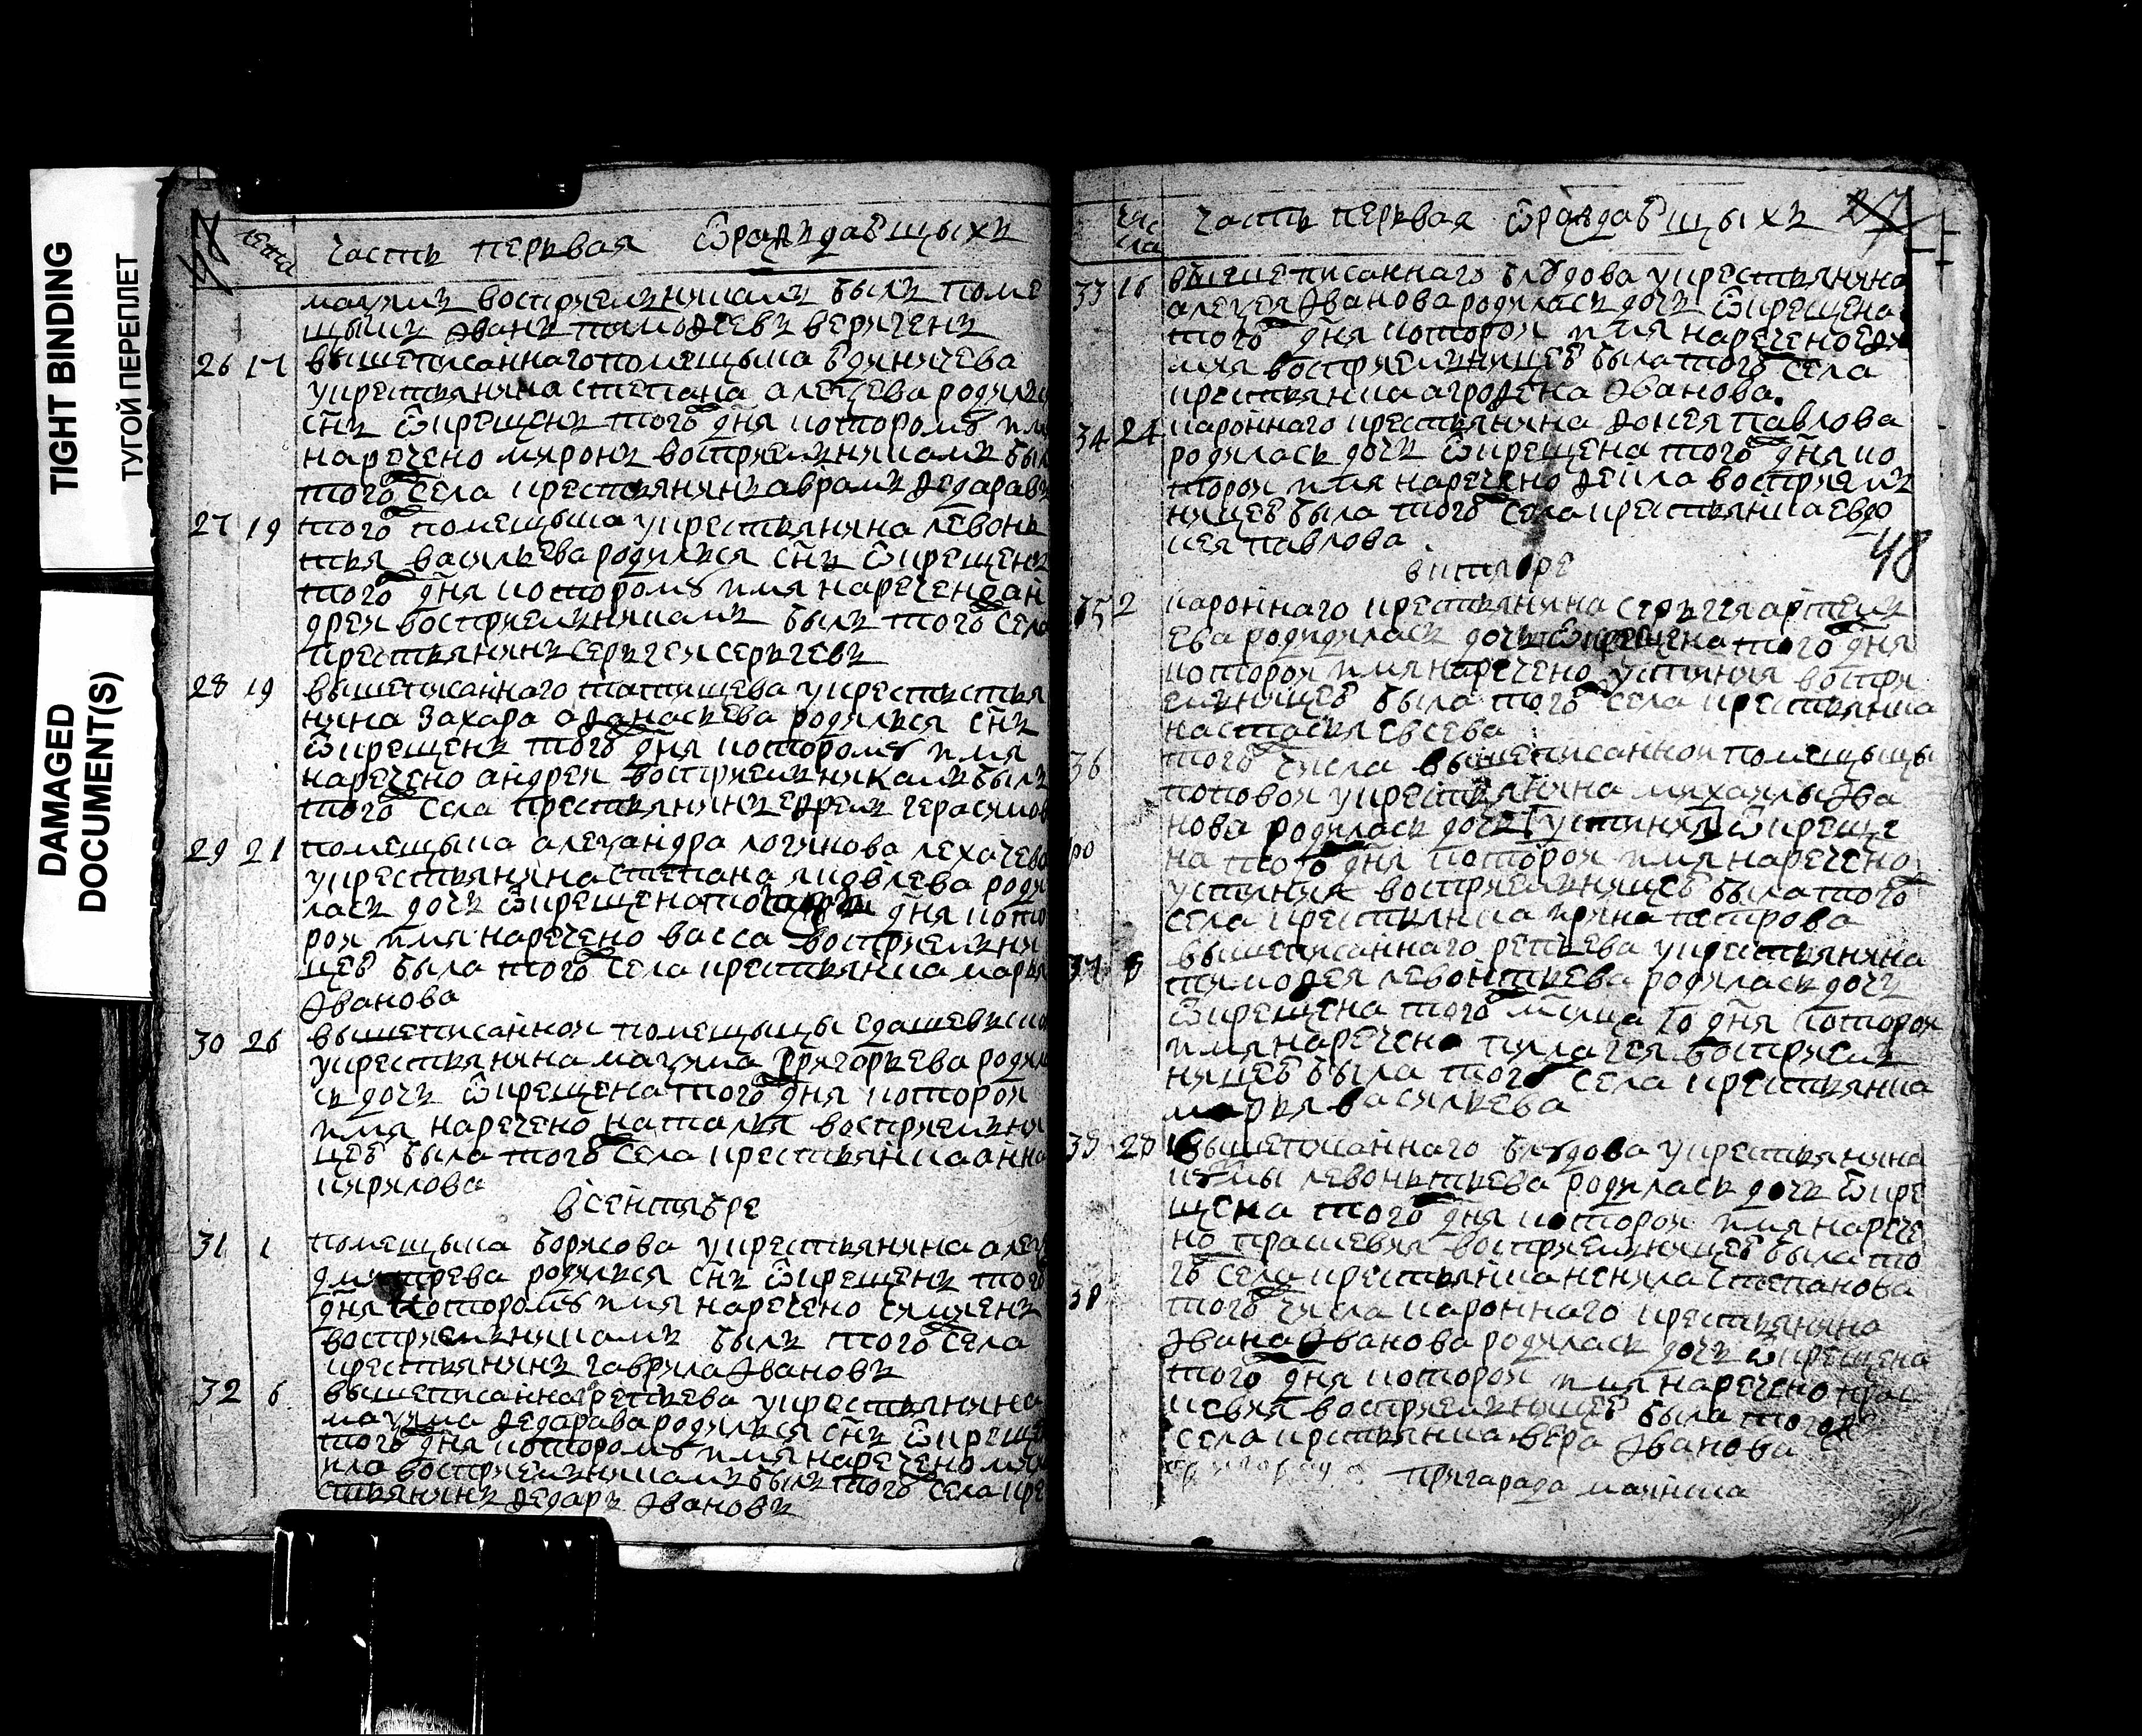 TIGHT BINDING
ТУГОЙ ПЕРЕПЛЕТ
DAMAGED
DOCUMENT(S)
часть перьвая ѿраждавшыхъ
маѯимъ восприемникамъ былъ поме
щыкъ Ѳванъ тимоѳеевъ веригенъ
26 17 вышеписаннаго помещыка
укрестьянина степана алеѯева родилс
снъ ѿкрещенъ того дня которомꙋ имя
наречено миронъ восприемникамъ был
того села крестьянинъ аврамъ ѳедаравъ
27 19 того помещыка укрестьянина левонь
тья васильева родился снъ ѿкрещенъ
того дня которомꙋ имя наречен ан
дреи восприемникамъ былъ того села
крестьянинъ серьгеи серьгевъ
28 19 вышеписаннаго татищева укрестьстья
нина захара аѳанасьева родился снъ
ѿкрещенъ того дня которомꙋ имя
наречено андреи восприемникамъ былъ
того села крестьянинъ еѳремъ герасимов
29 21 помещыка алеѯандра логинова лехачева
укрестьянина степана яковлева роди
лась дочь ѿкрещена дня кото
рои имя наречено васса восприемни
цеи была того села крестьянка марья
Ѳванова
30 26 вышеписаннои помещыцы едашевъско
укрестьянина маѯима григорьева родила
сь дочь ѿкрещена того дня которои
имя наречено наталья восприемни
цеи была того села крестьянка анна
кирилова
всентябре
31 1 помещыка борисова укрестьянина алеѯ
дмитрева родился снъ ѿкрещенъ того
дня которомꙋ имя наречено
восприемникамъ былъ того села
крестьянинъ гаврила Ѳвановъ
32 6 вышеписаннаго репьева укрестьянина
маѯима ѳедарава родился снъ ѿкреще
того дня которомꙋ имя наречено ми
ила восприемникамъ былъ того села кре
стьянинъ ѳедаръ Ѳвановъ
чис
ла
часть перьвая ѿраждавщыхъ 27
33 16 вышеписаннаго блꙋдова укрестьянина
алеѯея Ѳванова родилась дочь ѿкрещена
того дня которои имя наречено еѳи
мия восприемницеи была того села
крестьянка агроѳена Ѳванова.
34 24 кароннаго крестьянина ѳокея павлова
родилась дочь ѿкрещена того дня ко
торои имя наречено ѳекла восприемъ
ницеи была того села крестьянка евдо
кея павлова
48
вктябре
35 2 кароннаго крестьянина серьгея артемь
ева родидилась дочь ѿкрещена того дня
которои имя наречено устиния воспри
емницеи была того села крестьянка
настасья евсева
36 того числа вышеписаннои помещыцы
поповои укрестьянина михаилы Ѳва
нова родилась дочь устиния ѿкреще
на того дня которои имя наречено
устиния восприемницеи была того
села крестьянка ирина петрова
37 8 вышеписаннаго репьева укрестьянина
тимоѳея левонтьева родилась дочь
ѿкрещена того мсца 10 дня которои
имя наречено пилагея восприемъ
ницеи была того села крестьянка
марья васильева
38 28 вышеписаннаго блꙋдова укрестьянина
кꙋзмы левонтьева родилась дочь ѿкре
щена того дня которои имя нарече
но прасковья восприемницеи была то
го села крестьянка ненила степанова
того числа кароннаго крестьянина
Ѳвана Ѳванова родилась дочь ѿкрещена
того дня которои имя наречено прас
ковья восприемницеи была того
села крстьянка вера Ѳванова
пригарада маинска